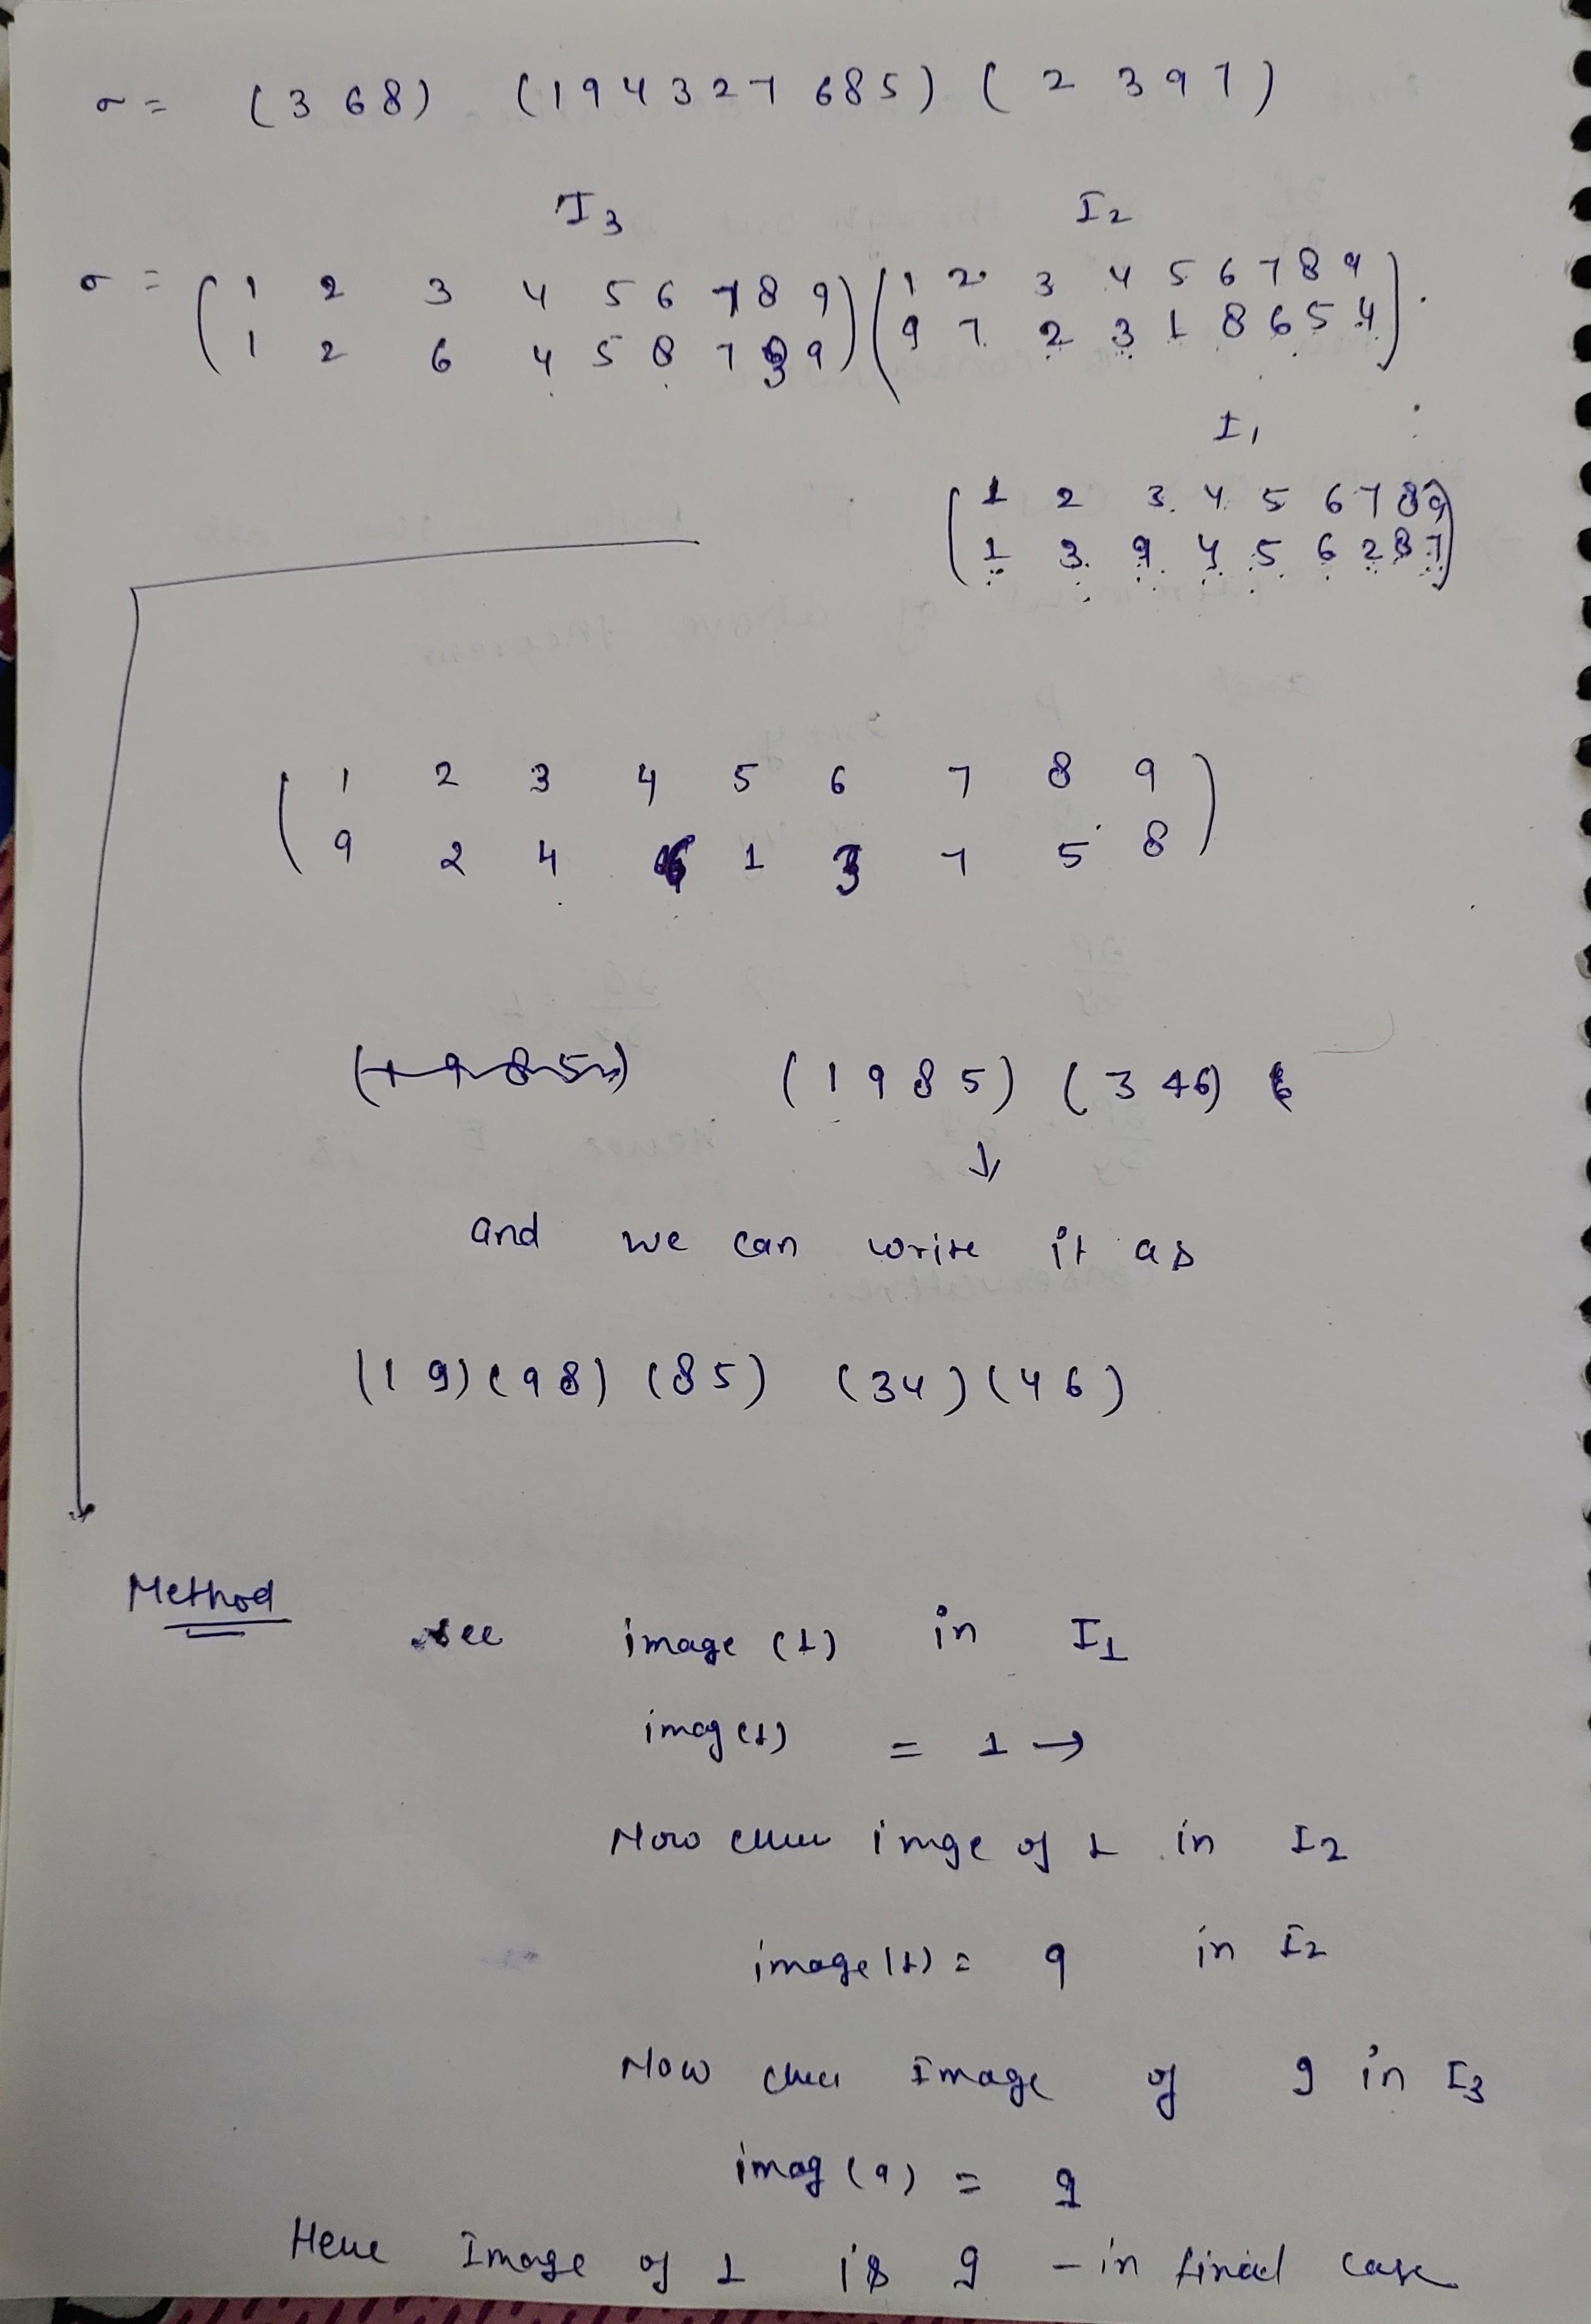 σ = (3 6 8) (1 9 4 3 2 7 6 8 5) (2 3 9 7)
I3 I2
σ = (1 2 3 4 5 6 7 8 9) (1 2 3 4 5 6 7 8 9)
(1 2 6 4 5 8 7 3 9) (9 7 2 3 1 8 6 5 4)
I1
(1 2 3 4 5 6 7 8 9)
(1 3 9 4 5 6 2 8 7)
(1 2 3 4 5 6 7 8 9)
(9 2 4 6 1 3 7 5 8)
(1 9 8 5) (1 9 8 5) (3 4 6)
↓
and we can write it as
(1 9) (9 8) (8 5) (3 4) (4 6)
Method see image (1) in I1
imag(1) = 1 →
Now imge of 1 in I2
image(1) = 9 in I2
Now Image of 9 in I3
imag (9) = 9
Image of 1 is 9 - in final case